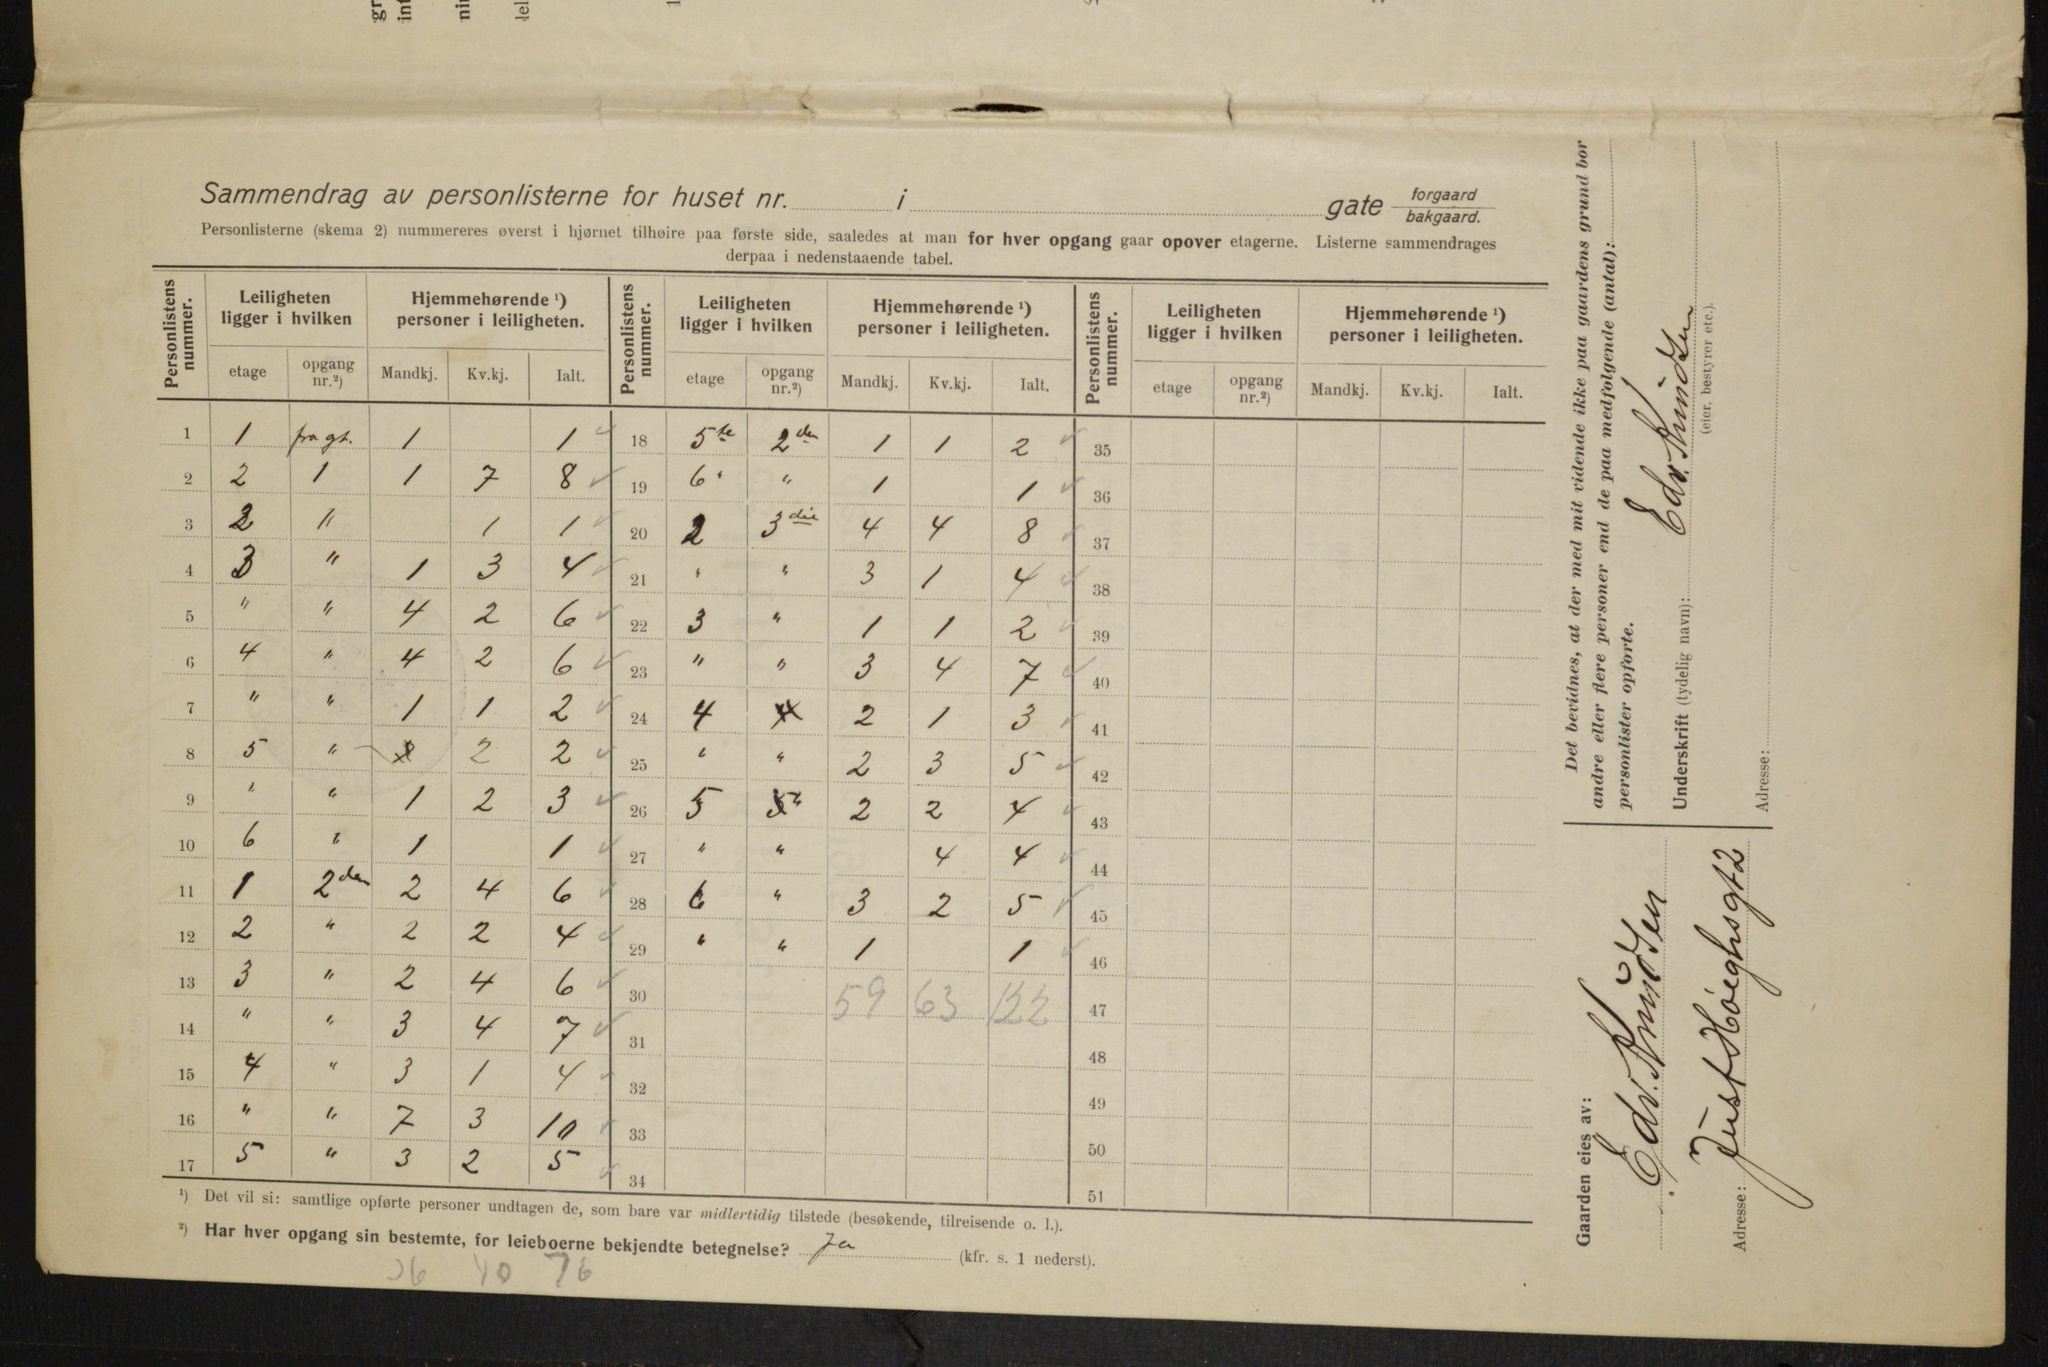 Sammendrag av personlisterne for huset nr. i gate forgaard bakgaard.
Personlisterne (skema 2) nummereres øverst i hjørnet tilhøire paa første side, saaledes at man for hver opgang gaar opover etagerne. Listerne sammendrages
derpaa i nedenstaaende tabel.
Personlistens nummer. Leiligheten ligger i hvilken Hjemmehørende ¹) personer i leiligheten. Personlistens nummer. Leiligheten ligger i hvilken Hjemmehørende ¹) personer i leiligheten. Personlistens nummer. Leiligheten ligger i hvilken Hjemmehørende ¹) personer i leiligheten.
etage opgang nr.²) Mandkj. Kv.kj. Ialt. etage opgang nr.²) Mandkj. Kv.kj. Ialt. etage opgang nr.²) Mandkj. Kv.kj. Ialt.
1 1 fra gt. 1 1 18 5te 2den 1 1 2 35
2 2 1 1 7 8 19 6 " " 1 1 36
3 2 " 1 1 20 2 3die 4 4 8 37
4 3 " 1 3 4 21 " " 3 1 4 38
5 " " 4 2 6 22 3 " 1 1 2 39
6 4 " 4 2 6 23 " " 3 4 7 40
7 " " 1 1 2 24 4 2 1 3 41
8 5 " 2 2 25 " " 2 3 5 42
9 " " 1 2 3 26 5 " 2 2 4 43
10 6 " 1 1 27 " " 4 4 44
11 1 2den 2 4 6 28 6 " 3 2 5 45
12 2 " 2 2 4 29 " " 1 1 46
13 3 " 2 4 6 30 59 63 122 47
14 " " 3 4 7 31 48
15 4 " 3 1 4 32 49
16 " " 7 3 10 33 50
17 5 " 3 2 5 34 51
¹) Det vil si: samtlige opførte personer undtagen de, som bare var midlertidig tilstede (besøkende, tilreisende o. l.).
²) Har hver opgang sin bestemte, for leieboerne bekjendte betegnelse? Ja (kfr. s. 1 nederst).
36 40 76
Gaarden eies av:
Edv. Knudsen
Adresse: Just Høeghsgt 2
Det bevidnes, at der med mit vidende ikke paa gaardens grund bor
andre eller flere personer end de paa medfølgende (antal):
personlister opførte.
Underskrift (tydelig navn): Edv. Knudsen
(eier, bestyrer etc.).
Adresse: